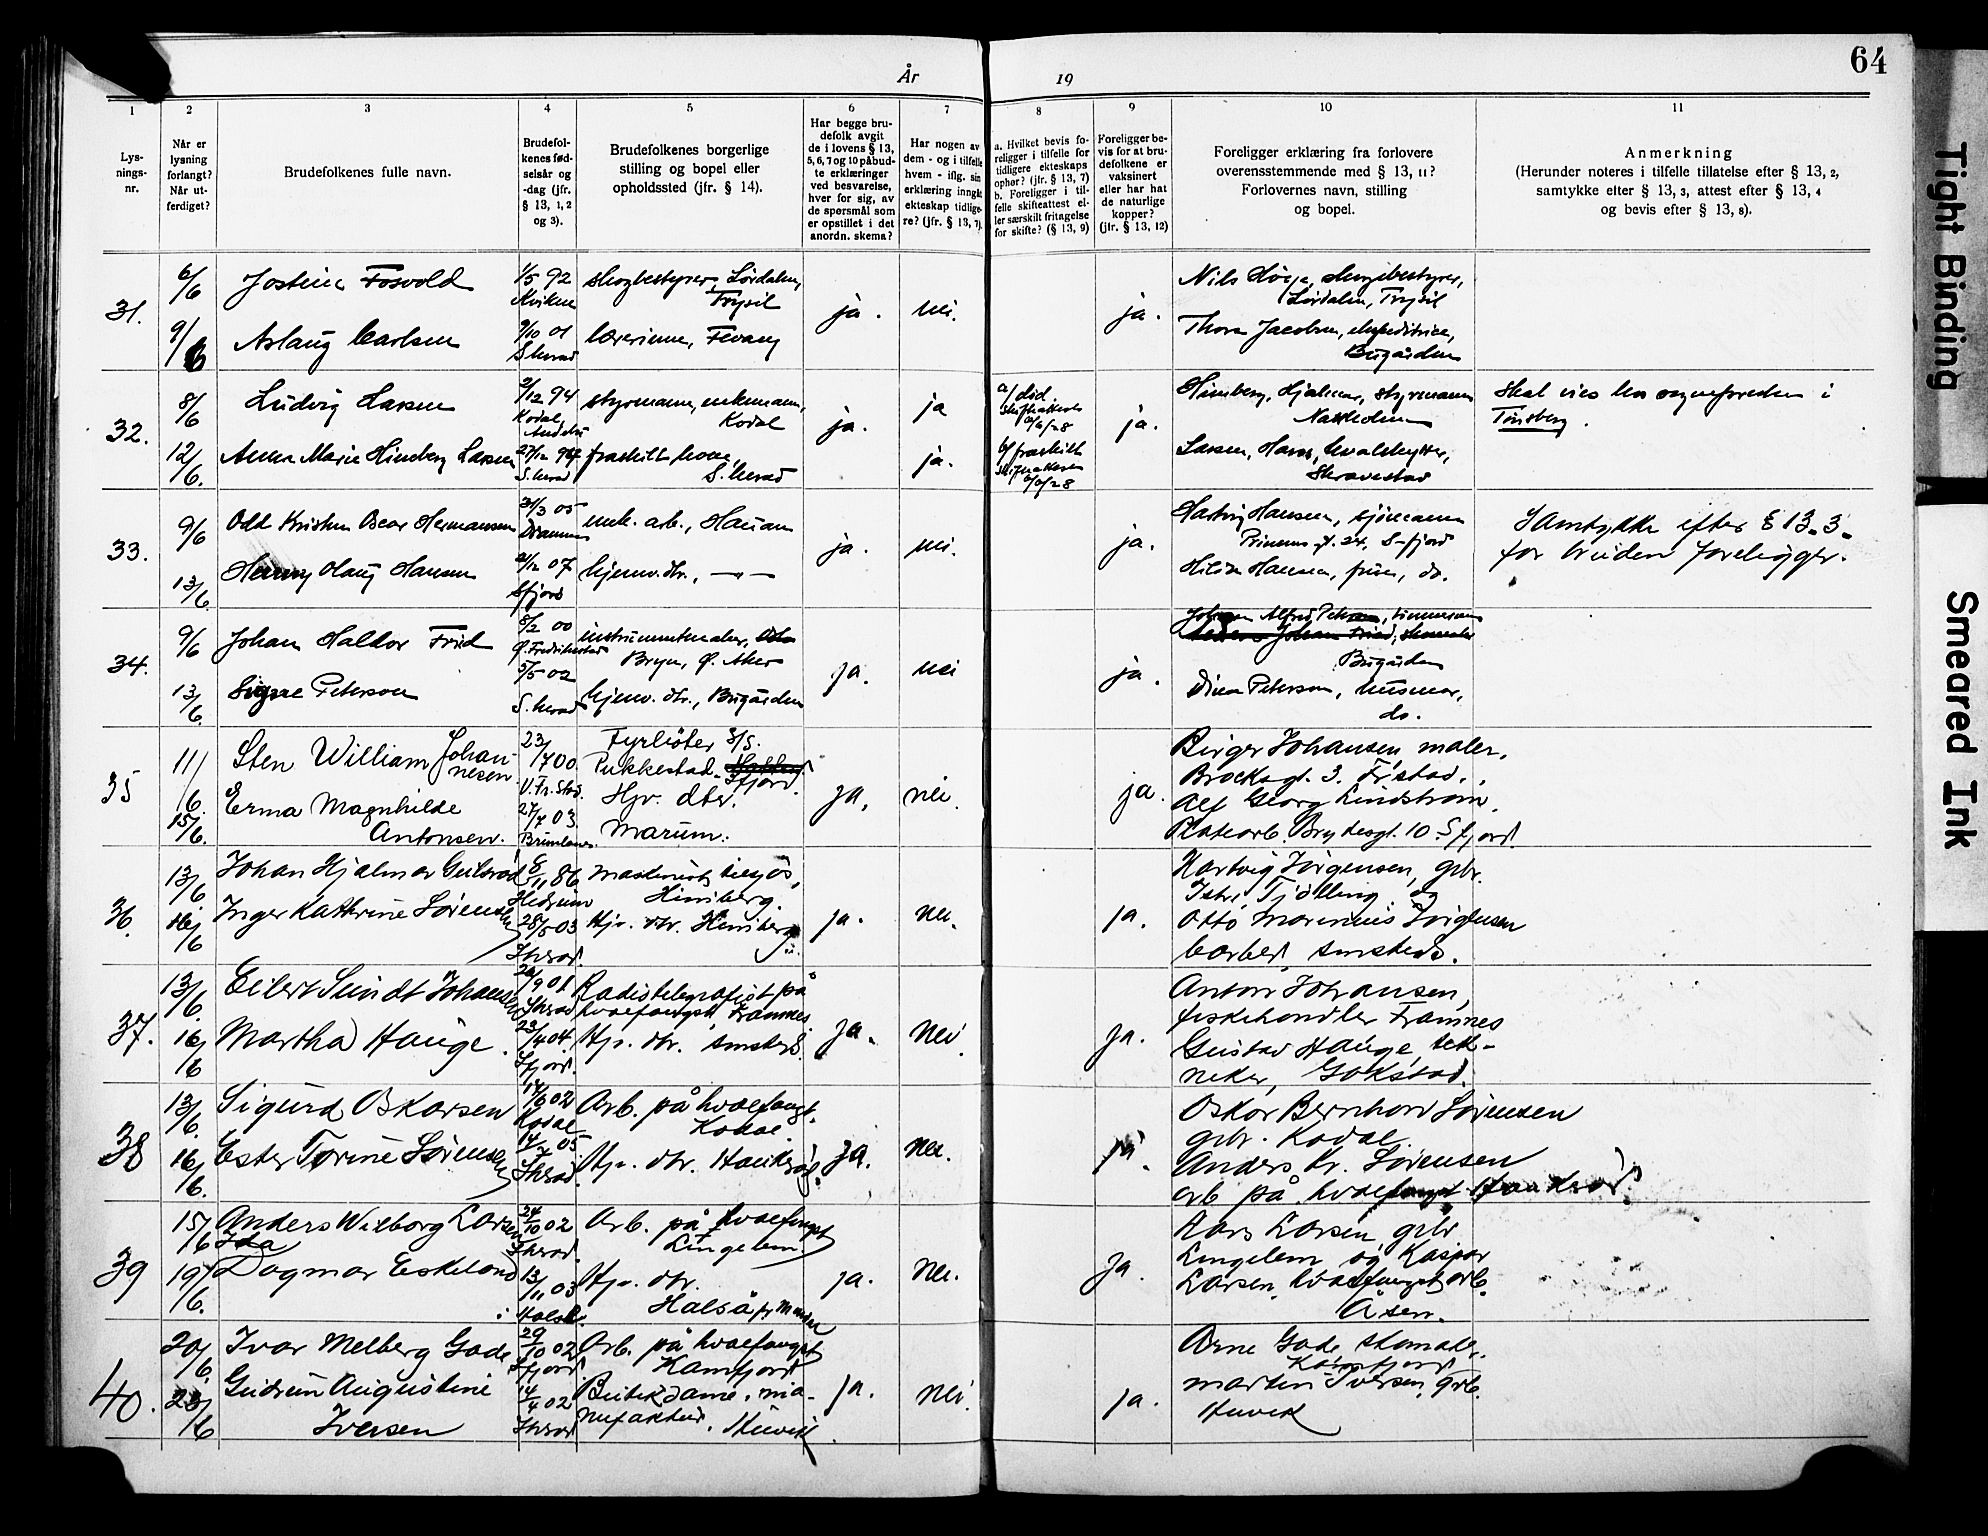 64
År
19
1
2
3
4
5
6
7
8
9
10
11
Lys-
nings-
nr.
Når er
lysning
forlangt?
Når ut-
ferdiget?
Brudefolkenes fulle navn.
Brudefol-
kenes fød-
selsår og
-dag (jfr.
§ 13, 1, 2
og 3).
Brudefolkenes borgerlige
stilling og bopel eller
opholdssted (jfr. § 14).
Har begge bru-
defolk avgit
de i lovens § 13,
5, 6, 7 og 10 påbud-
te erklæringer
ved besvarelse,
hver for sig, av
de spørsmål som
er opstillet i det
anordn. skema?
Har nogen av
dem - og i tilfelle
hvem - iflg. sin
erklæring inngått
ekteskap tidlige-
re? (jfr. § 13, 7).
a. Hvilket bevis fo-
religger i tilfelle for
tidligere ekteskaps
ophør? (jfr. § 13, 7)
b. Foreligger i til-
felle skifteattest el-
ler særskilt fritagelse
for skifte? (§ 13, 9)
Foreligger be-
vis for at bru-
defolkene er
vaksinert
eller har hat
de naturlige
kopper?
(jfr. § 13, 12)
Foreligger erklæring fra forlovere
overensstemmende med § 13, 11?
Forlovernes navn, stilling
og bopel.
Anmerkning
(Herunder noteres i tilfelle tillatelse efter § 13, 2,
samtykke efter § 13, 3, attest efter § 13, 4
og bevis efter § 13, 8).
31.
6/6
9/6
Jostein Fosvold
Aslaug Carlsen
1/5 92
Kvikne
9/10 01
S.herad
skogbestyrer, Lørdalen,
Trysil
lærerinne, Fevang
ja.
nei.
ja.
Nils Høye, skogbestyrer,
Lørdalen, Trysil
Thora Jacobsen, ekspeditrice,
Bugården
32.
8/6
12/6.
Ludvig Larsen
Anna Marie Himberg Larsen
2/12 94
Kodal,
Andebu
S.herad
styrmann, enkemann,
Kodal
fraskilt kone
S.herad
ja.
ja
ja.
a/ död
b/ fraskilt
ja.
Himberg, Hjalmar, styrmann
Larsen, Hans, hvalskytter,
Skravestad
Skal vies hos sogneforeden i
Tønsberg.
33.
9/6
13/6.
Odd Kristian Oscar Hermansen
Henny Olaug Hansen
31/3 05
Drammen
21/12 07
Sfjord
mek. arb., Hauan
hjemv. dtr., -"-
ja.
nei.
ja.
Hartvig Hansen, sjömann
Prinsens gt. 24, S-fjord
Hilda Hansen, frue, do.
Samtykke efter § 13-3-
for bruden foreligger.
34.
9/6
13/6.
Johan Haldor Frid
Signe Peterson
8/2 00
Ø. Fredrikstad
5/5 02
S.herad
instrumentmaker,
Bryn, Ø. Aker
hjemv. dtr., Bugården
ja.
nei
ja.
Johan Alfred Peterson, tømmermann
Bugården
Dina Peterson, husmor,
do.
35
11/6.
15/6.
Sten William Johan-
nesen.
Erma Magnhilde
Antonsen.
23/7 00
V. Fr.stad.
27/7 03
Brunlanes.
Fyrböter
Pukkestad
Sfjord.
Hjv. dter.
Marum.
ja.
nei.
ja.
Birger Johansen, maler.
Brocksgt. 3. Fr.stad.
Alf Georg Lindstrøm,
Platearb. Brydesgt. 10. Sfjord.
36.
13/6.
16/6
Johan Hjalmar Gulsrød
Inger Kathrine Sörensen
8/11 86
Hedrum
28/5 03
Sherad.
maskinist tilsjøs,
Himberg.
Hjv. dtr. Himberg
ja.
nei.
ja.
Hartvig Jörgensen, grbr.
Istre, Tjölling og
Otto Marenius Jörgensen
barber, smsteds.
37.
13/6.
16/6
Eilert Sundt Johansen
Martha Hauge.
Sherad
23/4 04
Sfjord.
Radiotelegrafist på
hvalfangst, Framnes
Hjv. dtr. smsteds.
ja.
nei
ja.
Anton Johansen,
fiskehandler Framnes
Gustav Hauge, tek-
niker, Gokstad.
38
13/6.
16/6.
Sigurd Oskarsen
Ester Torine Sörensen
Kodal
Sherad.
Arb. på hvalfangst.
Kodal.
Hjv. dtr. Haukerød.
ja.
nei.
ja.
Oskar Bernhard Sörensen
grbr. Kodal.
Anders Kr. Sörensen
arb på hvalfangst Haukerød.
39
15/6
19/6.
Anders Wilborg Larsen
Ida
Dagmar Eskeland
24/10 02
Sherad.
13/11 03
i Halså.
Arb. på hvalfangst
Lingelem
Hjv. dtr.
Halså pr. Mandal
ja.
nei.
ja.
Lars Larsen grbr
Lingelem og Kaspar
Larsen, hvalfangstarb.
Åsen.
40.
20/6
23/6
Ivar Melberg Gade
Gudrun Augustine
Iversen
29/10 02
Sfjord.
14/4 02
Sherad
Arb. på hvalfangst
Kamfjord
Butikdame, ma-
nufaktur, Huvik
ja.
nei.
ja.
Arne Gade skomaker.
Kamfjord
Martin Iversen, grb.
Huvik
Tight Binding
Smeared Ink